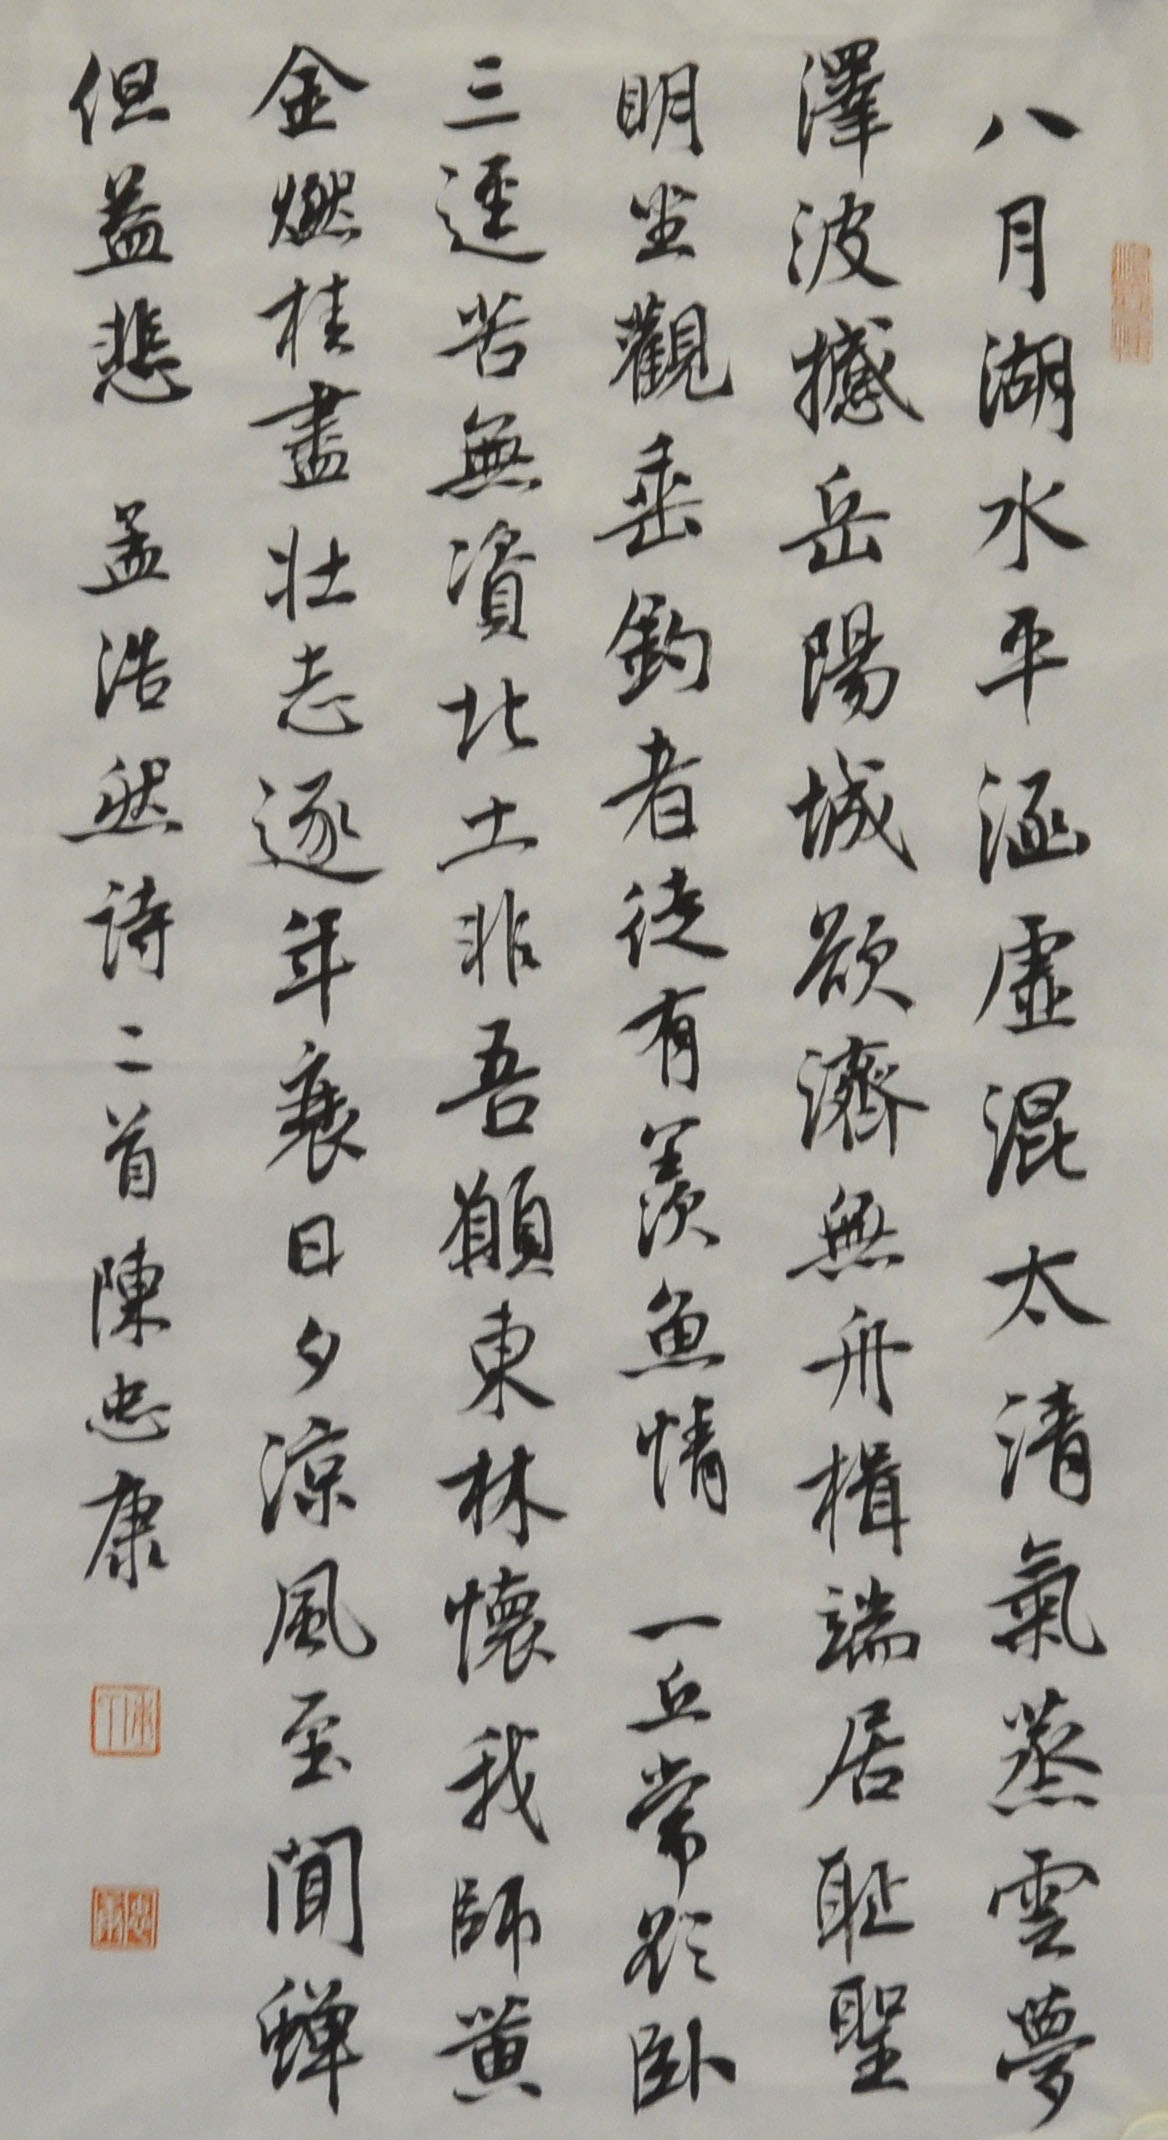 八月湖水平涵虛混太清氣蒸雲夢
澤波撼岳陽城欲濟無舟楫端居恥聖
明坐觀垂釣者徒有羨魚情 一丘常欲卧
三逕苦無資北土非吾願東林懷我師黄
金燃桂盡壯志逐年衰日夕涼風至聞蟬
但益悲 孟浩然詩二首陳忠康